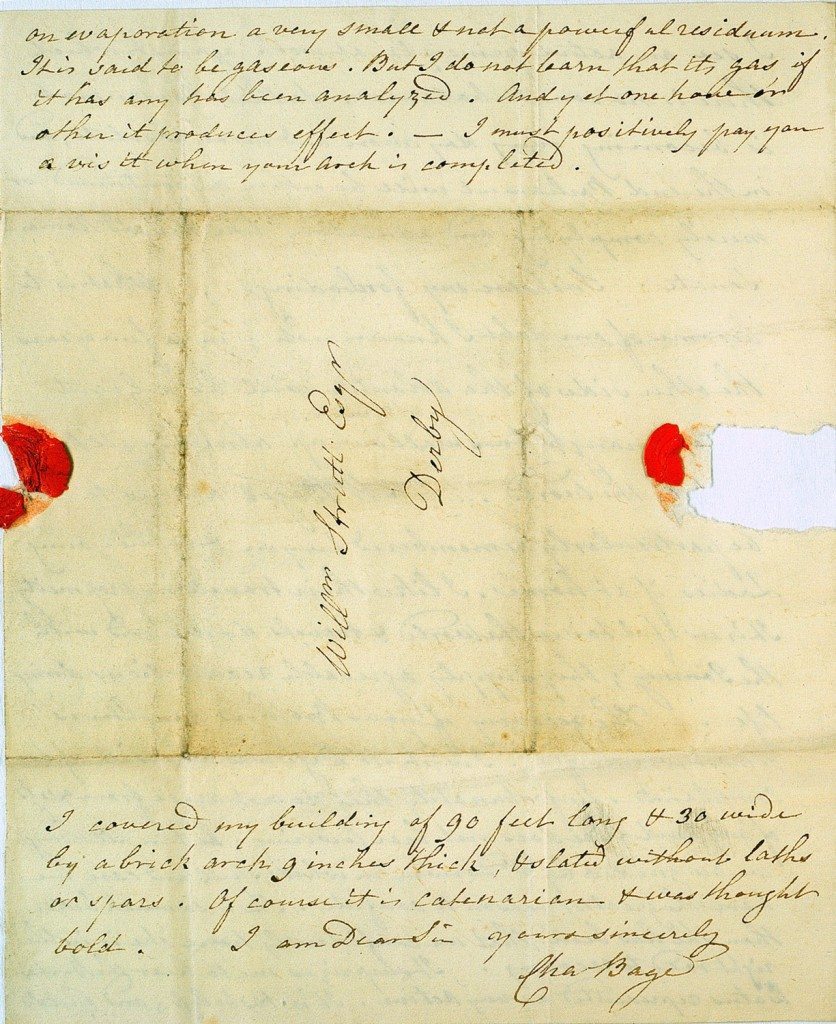 on evaporation a very small & not a powerful residuum.
It is said to be gaseous. But I do not learn that its gas if
it has any has been analyzed. And yet one how or
other it produces effect. — I must positively pay you
a visit when your arch is completed.
Willam Strutt Esqr
Derby
I covered my building of 90 feet long & 30 wide
by a brick arch 9 inches thick, & slated without laths
or spars. Of course it is catenarian & was thought
bold. I am Dear Sir yours sincerely
Cha Bage